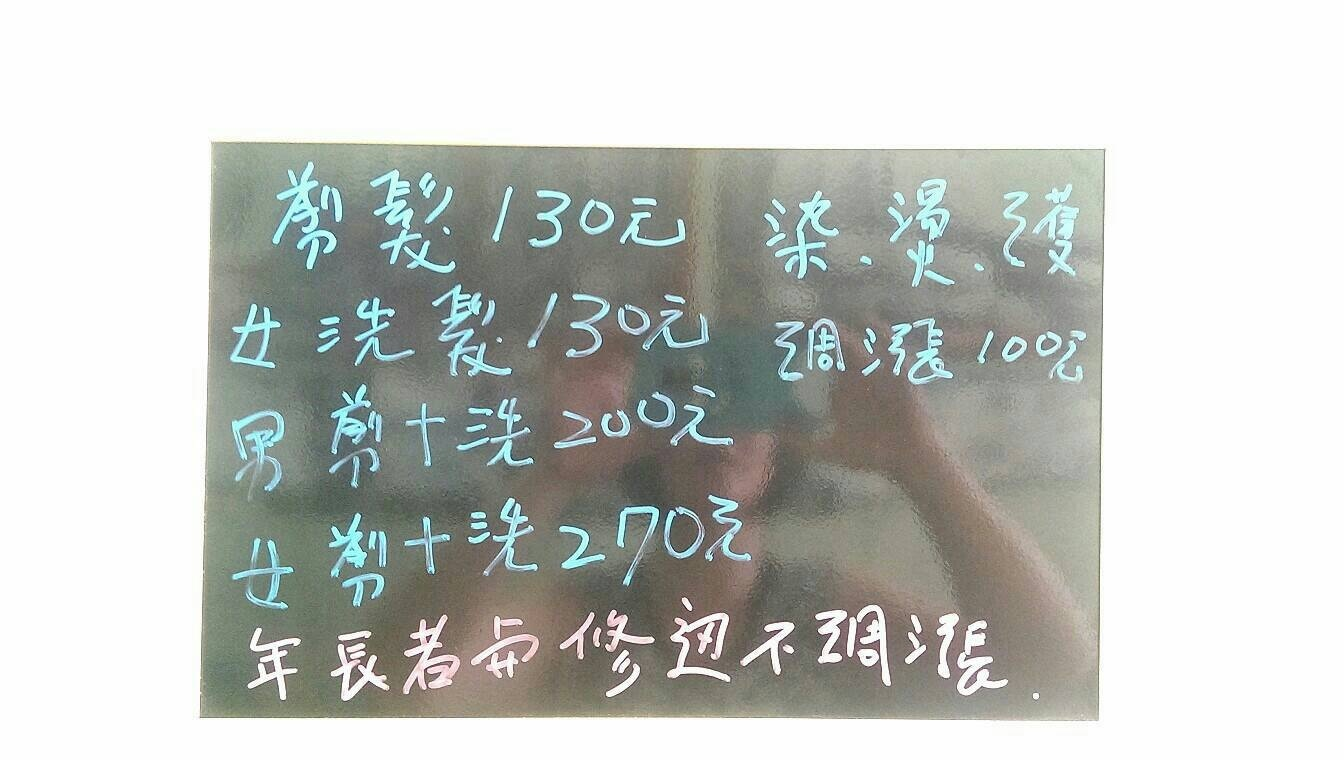 剪髮130元
女洗髮130元
男剪+洗200元
女剪+洗270元
染.燙.護
調漲100元
年長者與修边不調漲.